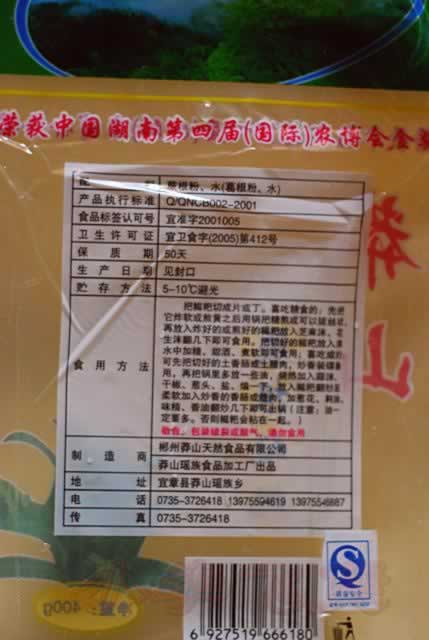 荣获中国湖南第四届(国际)农博会金奖
配 料 蕨根粉、水(葛根粉、水)
产品执行标准 Q/QNCB002-2001
食品标签认可号 宜准字2001005
卫生许可证 宜卫食字(2005)第412号
保质期 50天
生产日期 见封口
贮存方法 5-10℃避光
食用方法
把糍粑切成片或丁。喜吃糖食的：先把
它炸软或煎黄之后用锅把糖熬成可以拔丝状
再放入炸好的或煎好的糍粑放入芝麻沫、花
生沫翻几下即可食用。把切好的糍粑放入
水中加糖、甜酒、煮软即可食用；喜吃咸的
可先把切好的土香肠或土腊肉，炒香装碟备
用，再把锅里多放一些油
干椒、葱头、盐
柔软加入炒香的香肠或腊肉、加葱花、剁油
味精、香油翻炒几下即可出锅（注意：油一
定要多。否则糍粑会粘在一起。）
敬告：包装破裂或胀气，请勿食用
制造商 郴州莽山天然食品有限公司
莽山瑶族食品加工厂出品
地址 宜章县莽山瑶族乡
电话 0735-3726418 13975594619 13975546887
传真 0735-3726418
莽
山
净重：400g
质量安全
6 927519 666180